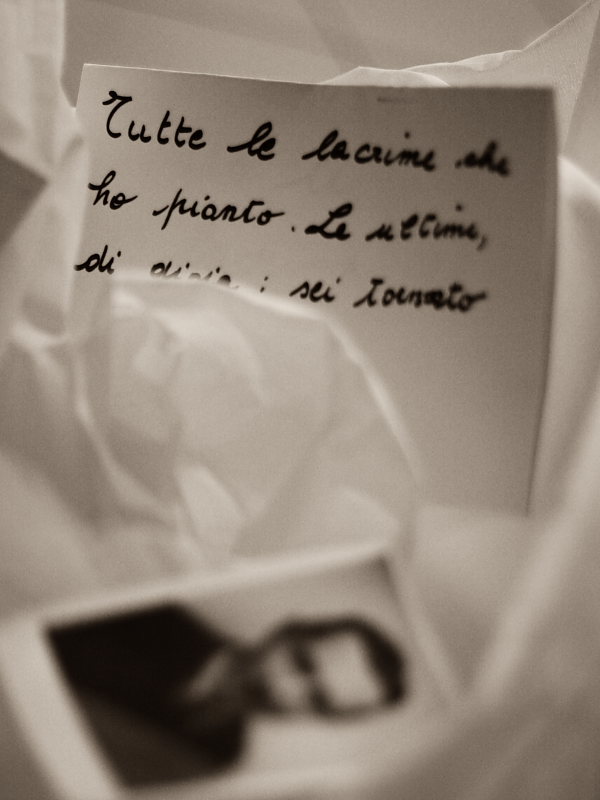 Tutte le lacrime che
ho pianto. Le ultime,
di gioia: sei tornato